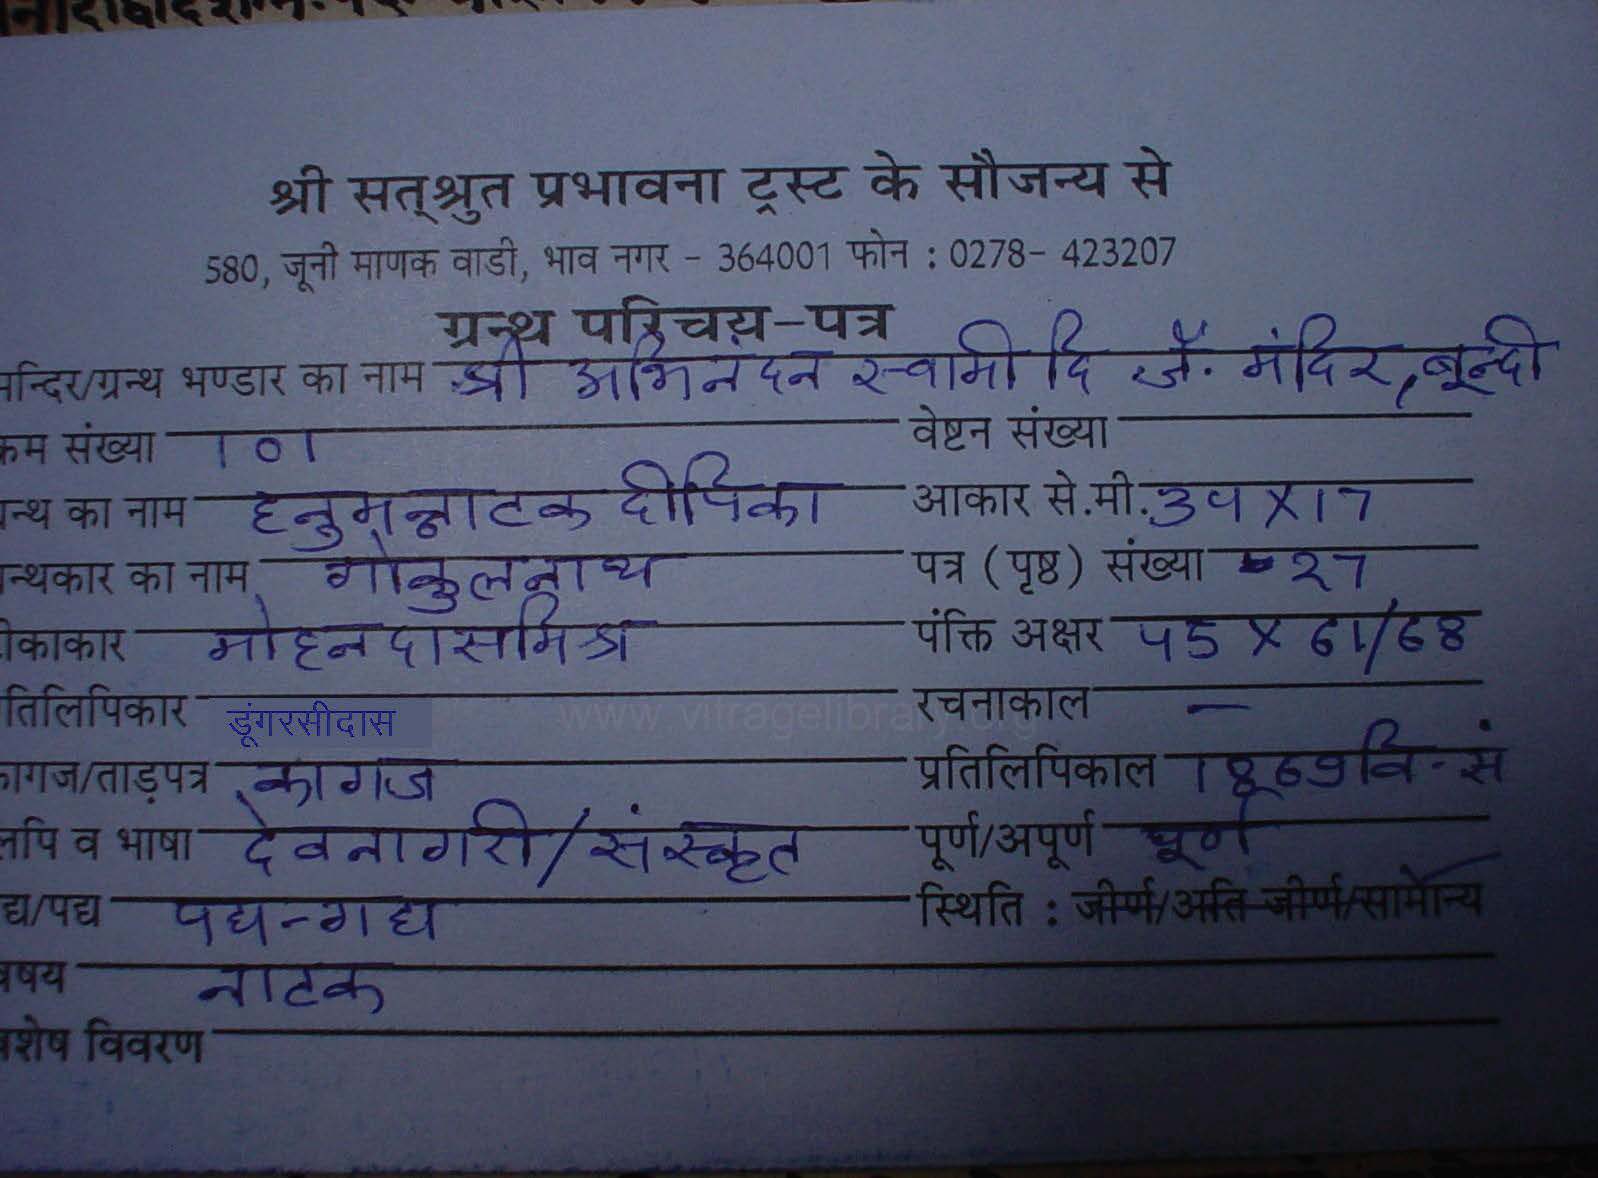 श्री सत्‌श्रुत प्रभावना ट्रस्ट के सौजन्य से
580, जूनी माणक वाडी, भाव नगर - 364001 फोन : 0278- 423207
ग्रन्थ परिचय-पत्र
न्दिर/ग्रन्थ भण्डार का नाम श्री अभिनंदन स्वामी दि जैं. मंदिर, बून्दी
क्रम संख्या 101 वेष्टन संख्या
ग्रन्थ का नाम हनुमन्नाटक दीपिका आकार से.मी. 34 X 17
न्थकार का नाम गोकुलनाथ पत्र (पृष्ठ) संख्या - 27
ीकाकार मोहनदासमिश्र पंक्ति अक्षर 15 X 61/68
तिलिपिकार डूंगरसीदास रचनाकाल —
ागज/ताड़पत्र कागज प्रतिलिपिकाल वि. सं
लिपि व भाषा देवनागरी/संस्कृत पूर्ण/अपूर्ण पूर्ण
द्य/पद्य पद्य-गद्य स्थिति : जीर्ण/अति जीर्ण/सामान्य
विषय नाटक
विशेष विवरण
www.vitragelibrary.org